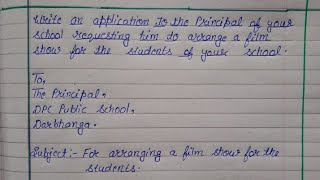 Write an application to the Principal of your
school requesting him to arrange a film
show for the students of your school.
To,
The Principal,
DPC Public School,
Darbhanga.
Subject:- For arranging a film show for the
students.